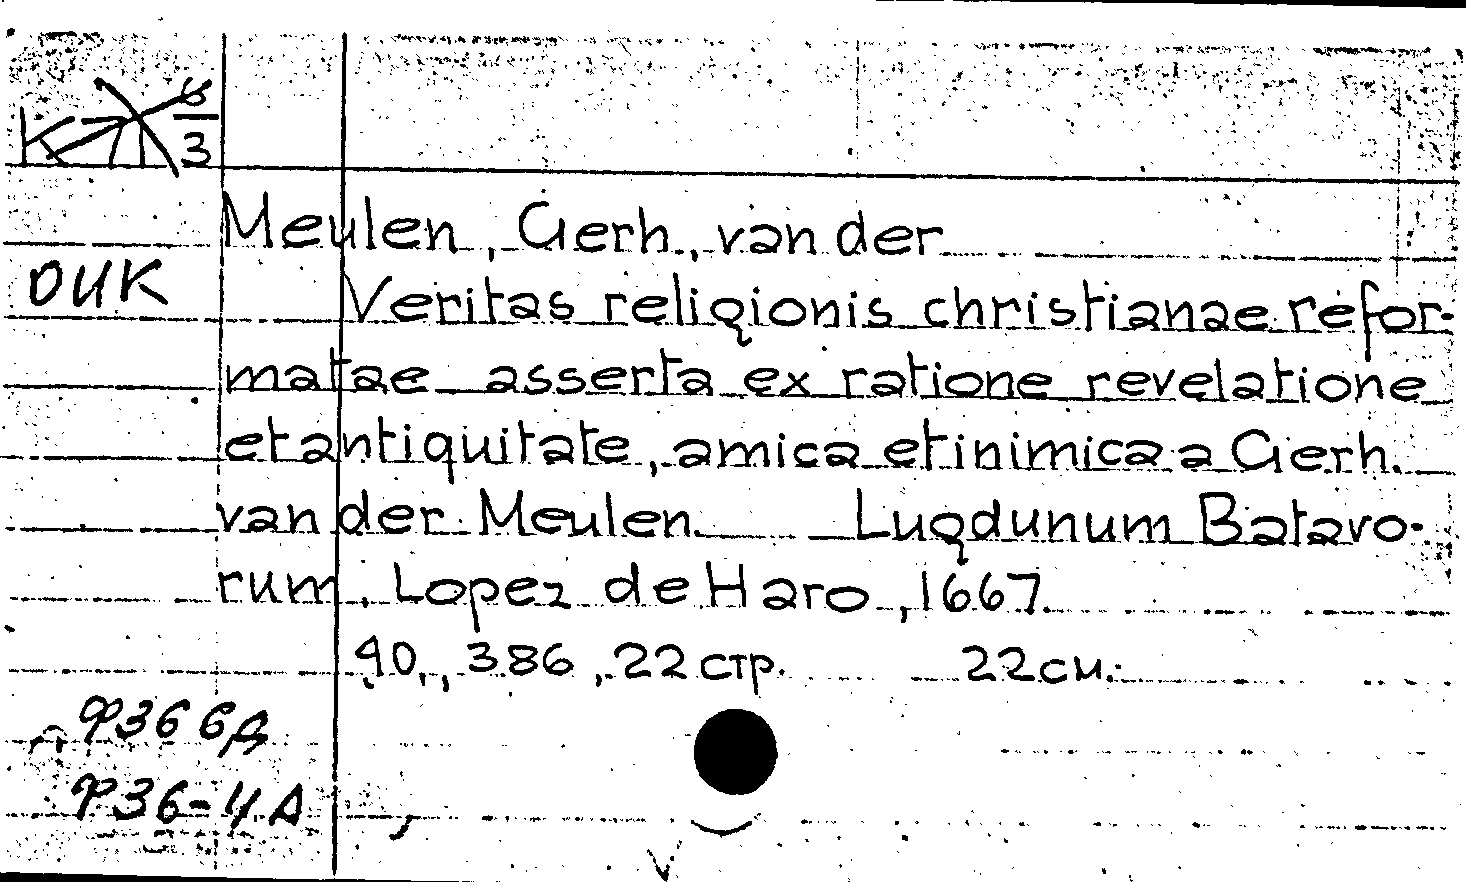 Meulen, Gerh., van der
ОИК
Veritas religionis christianae refor-
matae asserta ex ratione revelatione
et antiquitate, amica et inimica a Gerh.
van der Meulen. Lugdunum Batavo-
rum, Lopez de Haro, 1667.
40, 386, 22 стр. 22 см.
Ф36 6д
Ф36-4А